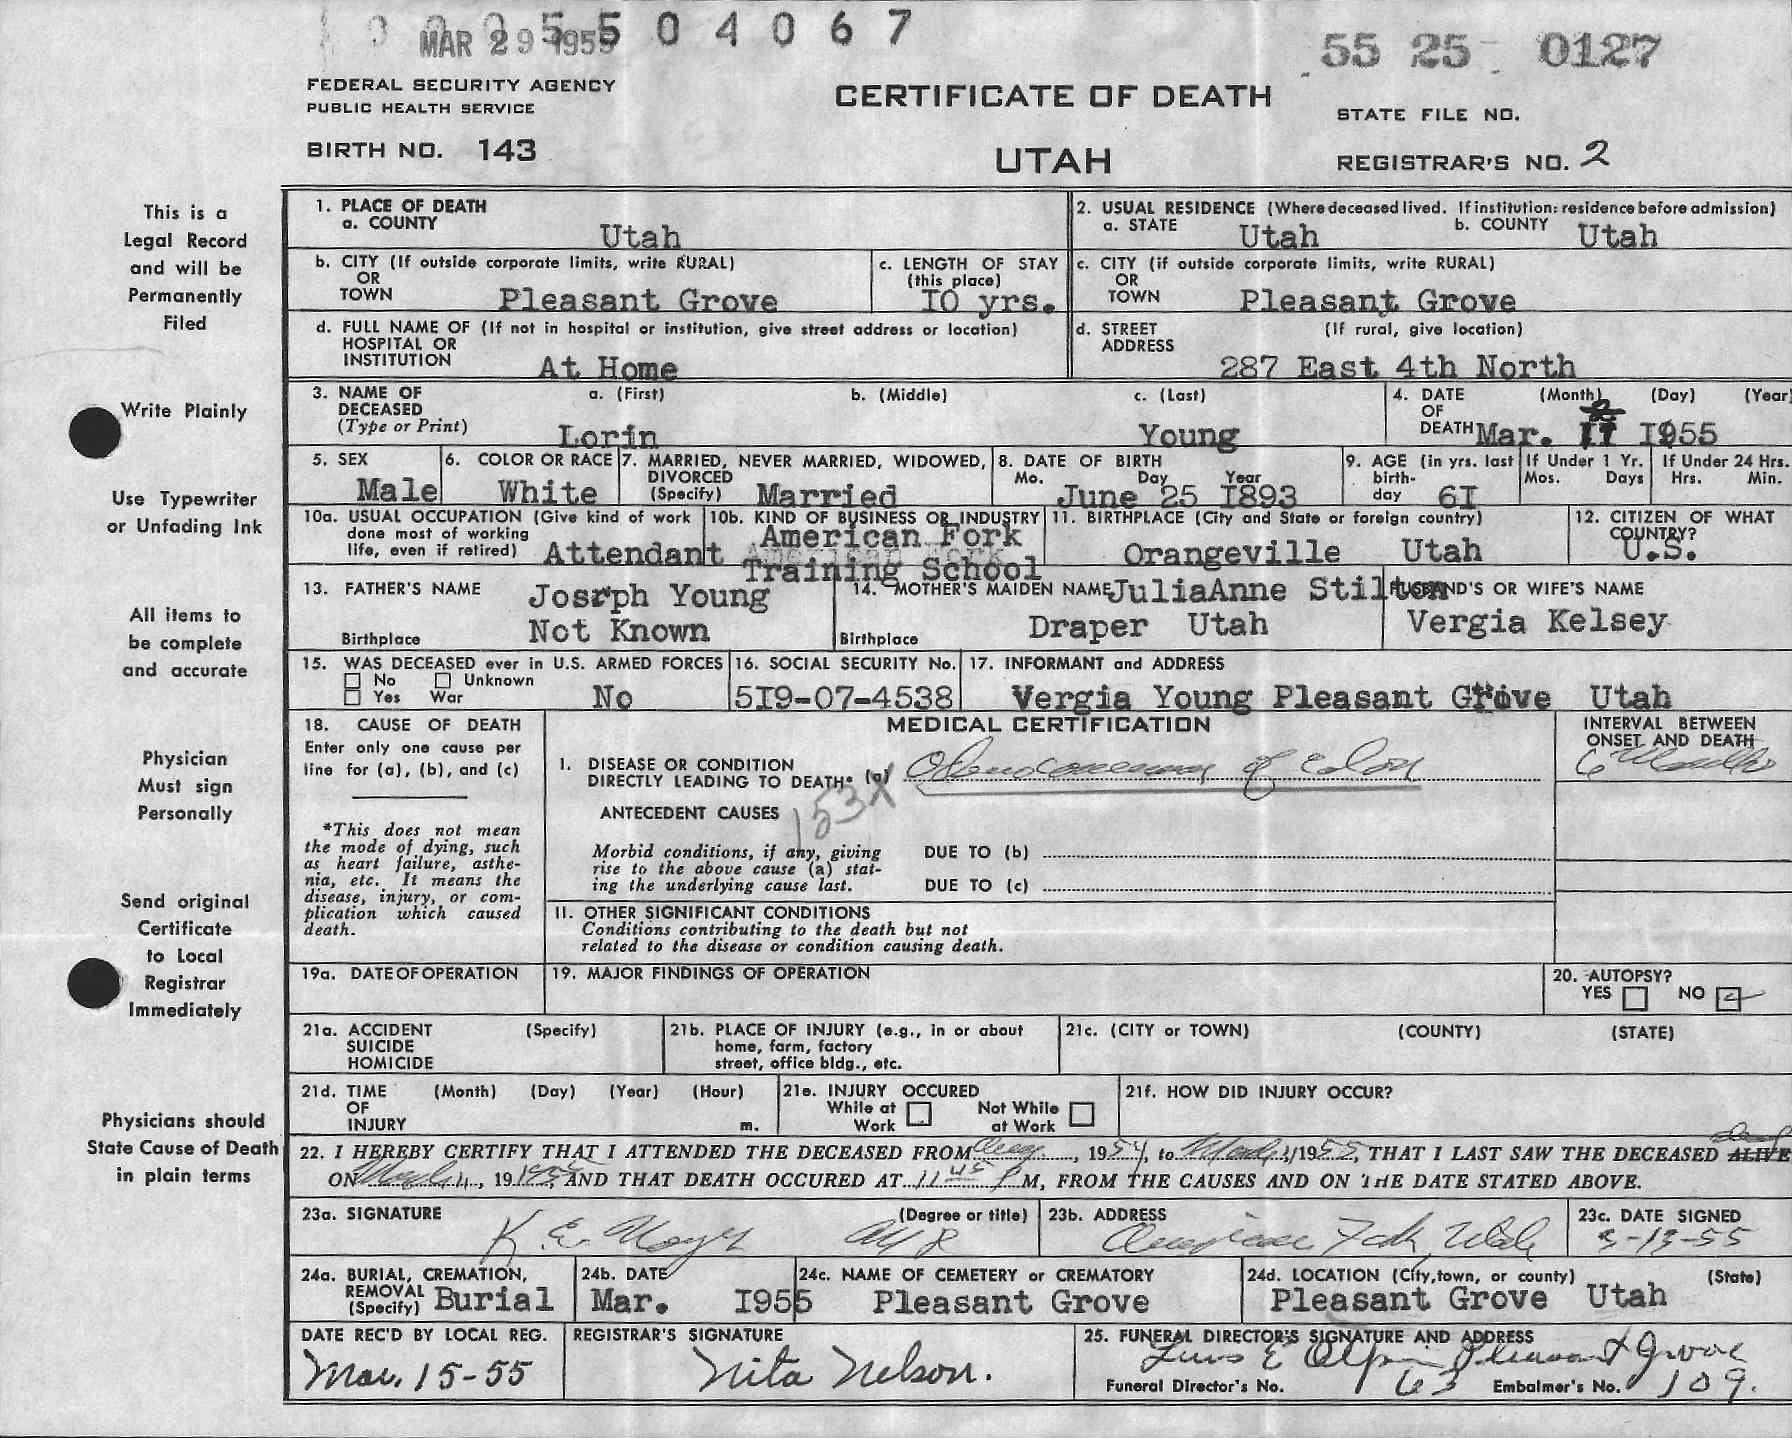 MAR 29 1955 5 0 4 0 6 7
55 25 0127
FEDERAL SECURITY AGENCY
PUBLIC HEALTH SERVICE
CERTIFICATE OF DEATH
STATE FILE NO.
BIRTH NO. 143
UTAH
REGISTRAR'S NO. 2
This is a
Legal Record
and will be
Permanently
Filed
Write Plainly
Use Typewriter
or Unfading Ink
All items to
be complete
and accurate
Physician
Must sign
Personally
Send original
Certificate
to Local
Registrar
Immediately
Physicians should
State Cause of Death
in plain terms
1. PLACE OF DEATH
a. COUNTY Utah
2. USUAL RESIDENCE (Where deceased lived. If institution: residence before admission)
a. STATE Utah b. COUNTY Utah
b. CITY (If outside corporate limits, write RURAL)
OR
TOWN Pleasant Grove
c. LENGTH OF STAY
(this place)
I0 yrs.
c. CITY (if outside corporate limits, write RURAL)
OR
TOWN Pleasant Grove
d. FULL NAME OF (If not in hospital or institution, give street address or location)
HOSPITAL OR
INSTITUTION At Home
d. STREET (If rural, give location)
ADDRESS
287 East 4th North
3. NAME OF
DECEASED
(Type or Print)
a. (First) b. (Middle) c. (Last)
Lorin Young
4. DATE (Month) (Day) (Year)
OF
DEATH Mar. I955
5. SEX
Male
6. COLOR OR RACE
White
7. MARRIED, NEVER MARRIED, WIDOWED,
DIVORCED
(Specify) Married
8. DATE OF BIRTH
Mo. Day Year
June 25 I893
9. AGE (in yrs. last
birth-
day 6I
If Under 1 Yr.
Mos. Days
If Under 24 Hrs.
Hrs. Min.
10a. USUAL OCCUPATION (Give kind of work
done most of working
life, even if retired) Attendant
10b. KIND OF BUSINESS OR INDUSTRY
American Fork
Training School
11. BIRTHPLACE (City and State or foreign country)
Orangeville Utah
12. CITIZEN OF WHAT
COUNTRY?
U.S.
13. FATHER'S NAME Josrph Young
Birthplace Not Known
14. MOTHER'S MAIDEN NAME JuliaAnne Stilton
Birthplace Draper Utah
HUSBAND'S OR WIFE'S NAME
Vergia Kelsey
15. WAS DECEASED ever in U.S. ARMED FORCES
No Unknown
Yes War No
16. SOCIAL SECURITY No.
5I9-07-4538
17. INFORMANT and ADDRESS
Vergia Young Pleasant Grove Utah
18. CAUSE OF DEATH
Enter only one cause per
line for (a), (b), and (c)
*This does not mean
the mode of dying, such
as heart failure, asthe-
nia, etc. It means the
disease, injury, or com-
plication which caused
death.
MEDICAL CERTIFICATION
INTERVAL BETWEEN
ONSET AND DEATH
6 Months
I. DISEASE OR CONDITION
DIRECTLY LEADING TO DEATH* (a) of Colon
153X
ANTECEDENT CAUSES
Morbid conditions, if any, giving
rise to the above cause (a) stat-
ing the underlying cause last.
DUE TO (b)
DUE TO (c)
II. OTHER SIGNIFICANT CONDITIONS
Conditions contributing to the death but not
related to the disease or condition causing death.
19a. DATE OF OPERATION
19. MAJOR FINDINGS OF OPERATION
20. AUTOPSY?
YES NO
21a. ACCIDENT (Specify)
SUICIDE
HOMICIDE
21b. PLACE OF INJURY (e.g., in or about
home, farm, factory
street, office bldg., etc.
21c. (CITY or TOWN) (COUNTY) (STATE)
21d. TIME (Month) (Day) (Year) (Hour)
OF
INJURY m.
21e. INJURY OCCURED
While at Work Not While at Work
21f. HOW DID INJURY OCCUR?
22. I HEREBY CERTIFY THAT I ATTENDED THE DECEASED FROM Aug., 1954, to 1955, THAT I LAST SAW THE DECEASED ALIVE
ON 19 1955, AND THAT DEATH OCCURED AT 11 45 P M, FROM THE CAUSES AND ON THE DATE STATED ABOVE.
23a. SIGNATURE (Degree or title)
K. E.
23b. ADDRESS
American Fork, Utah
23c. DATE SIGNED
3-13-55
24a. BURIAL, CREMATION,
REMOVAL
(Specify) Burial
24b. DATE
Mar. I955
24c. NAME OF CEMETERY or CREMATORY
Pleasant Grove
24d. LOCATION (City, town, or county) (State)
Pleasant Grove Utah
DATE REC'D BY LOCAL REG.
Mar. 15-55
REGISTRAR'S SIGNATURE
Nita Nelson.
25. FUNERAL DIRECTOR'S SIGNATURE AND ADDRESS
E Olpin Pleasant Grove
Funeral Director's No. 63 Embalmer's No. 109.